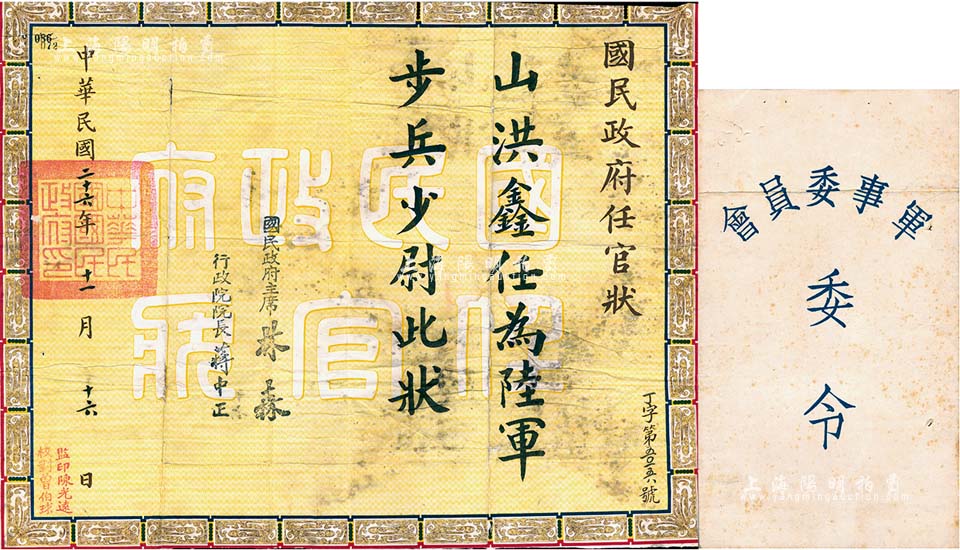 國民政府任官狀
山洪鑫任為陸軍
步兵少尉此狀
國民政府主席 林森
行政院院長 蔣中正
中華民國二十六年十一月十六日
監印陳光遠
校對曾伯球
國民政府
任官狀
中華民國國民政府之印
軍事委員會
委令
上海陽明拍賣
www.yangmingauction.com